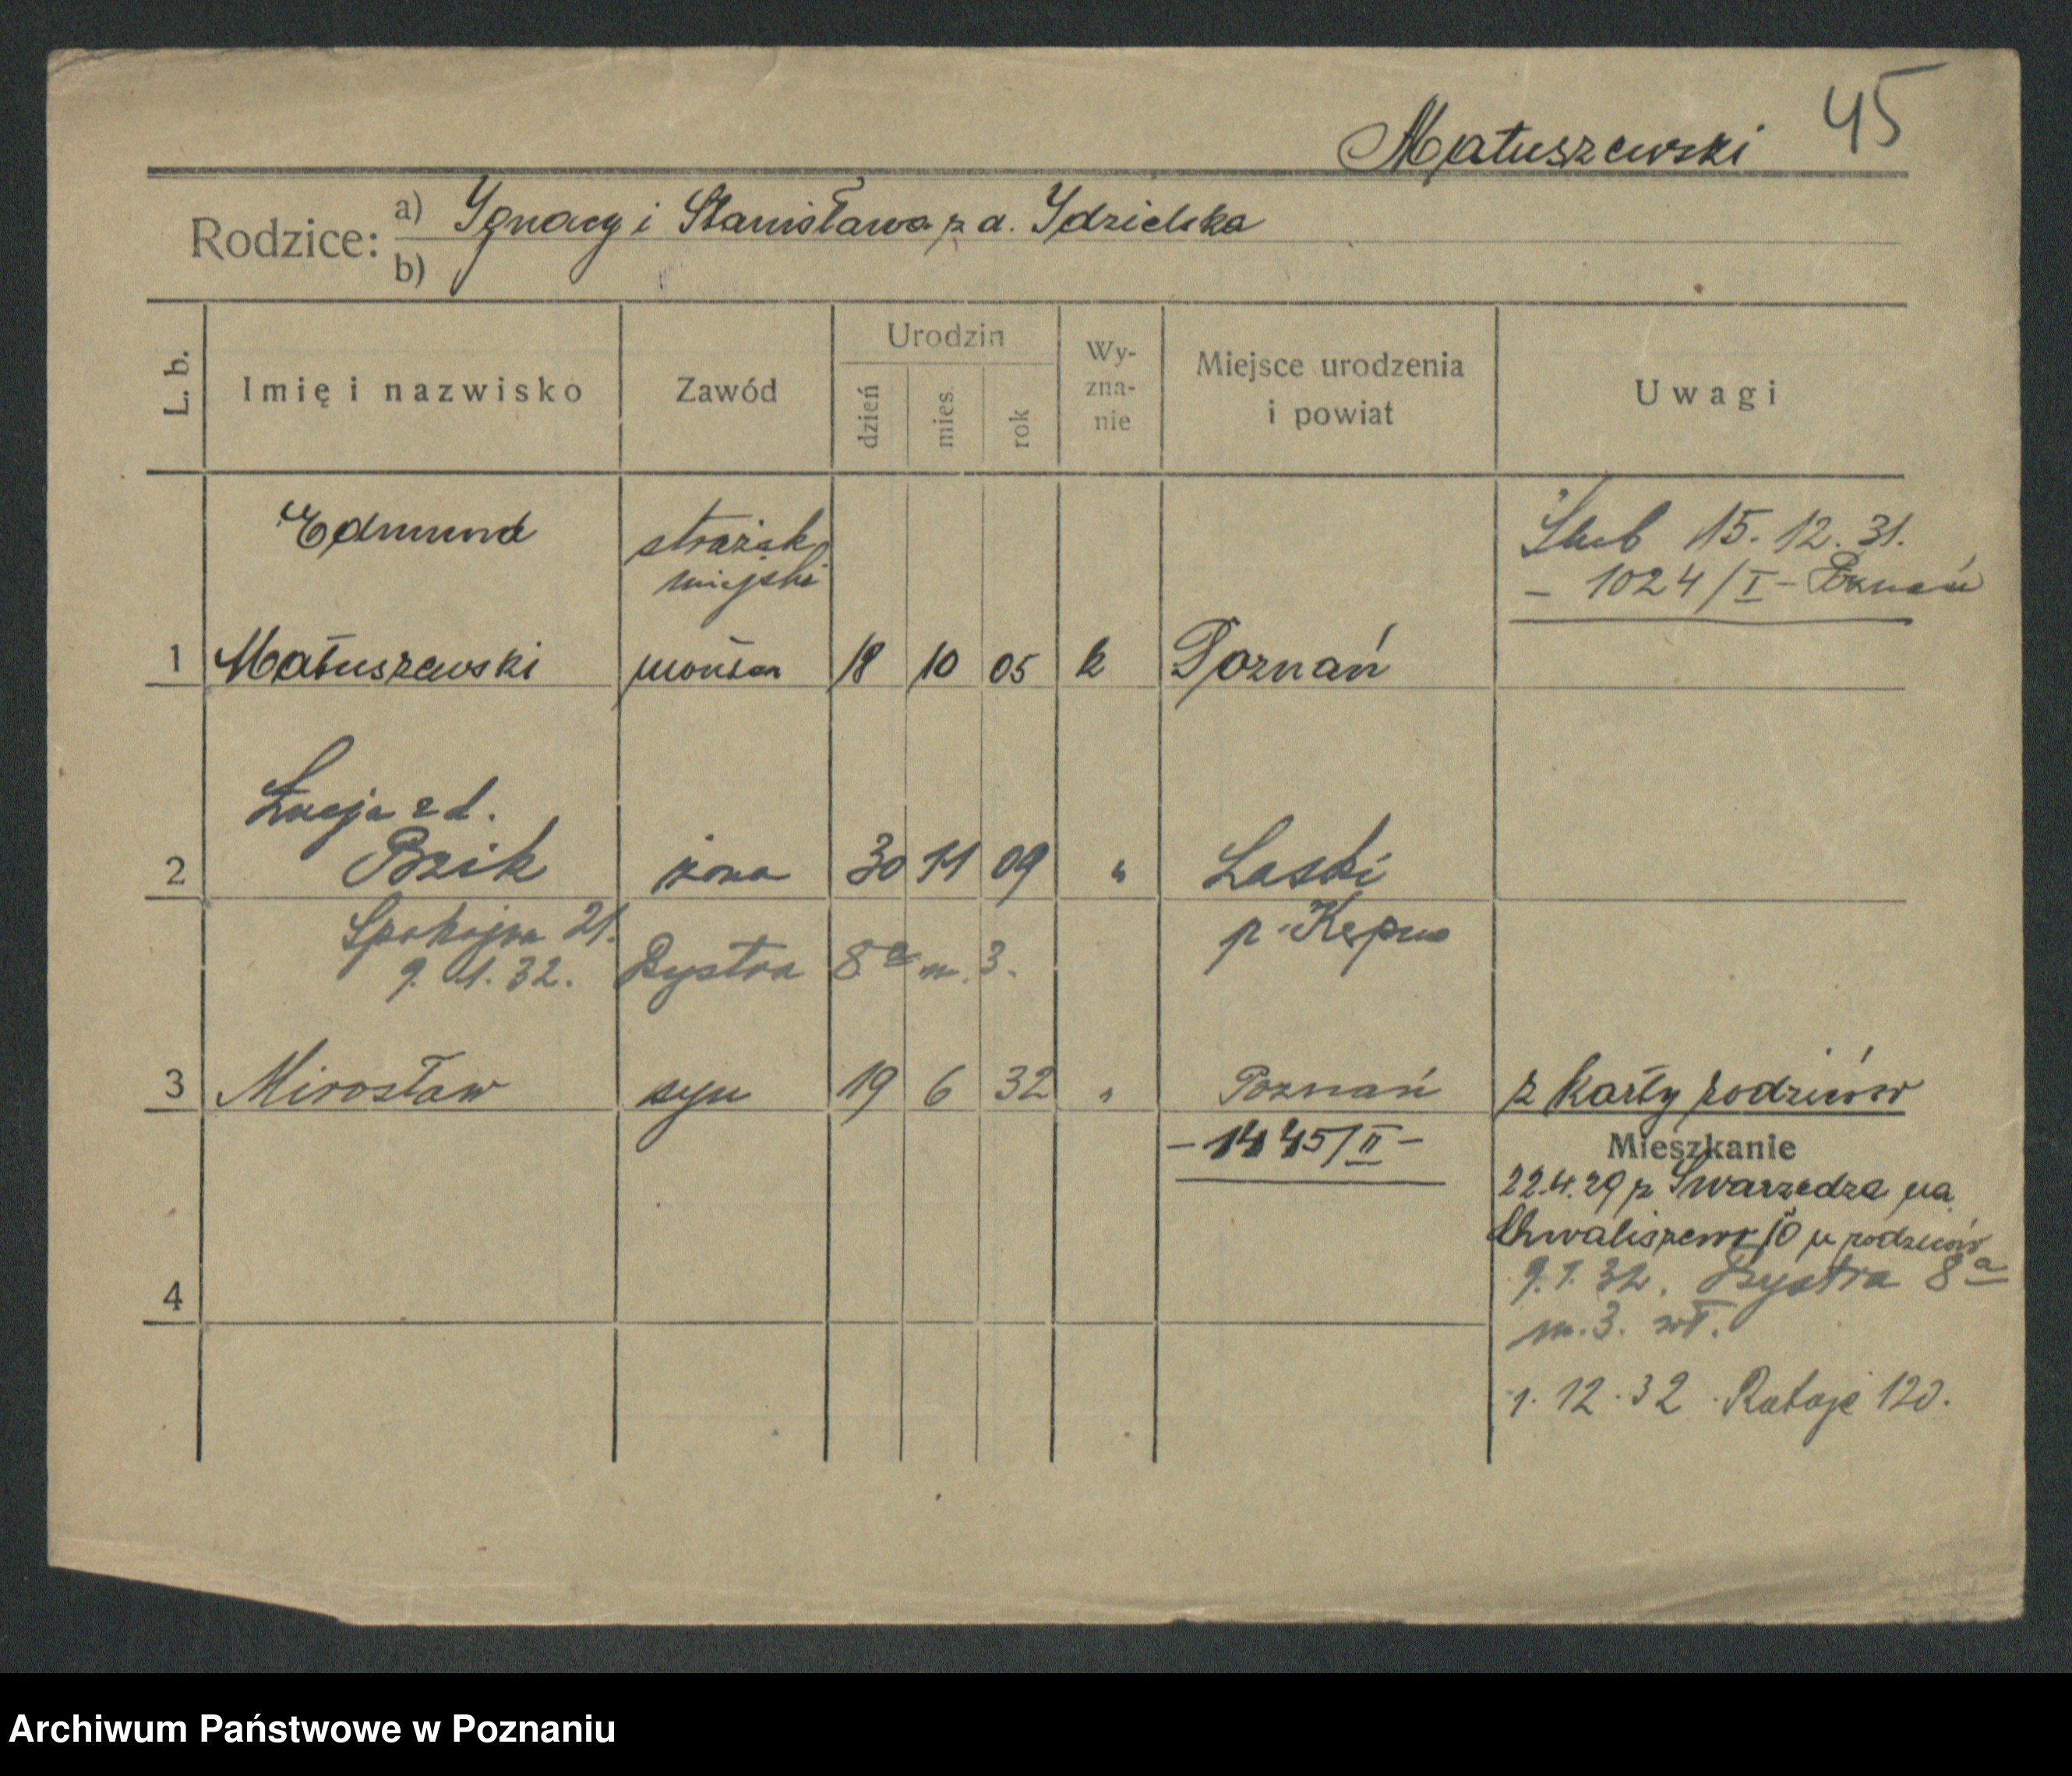 45
Matuszewski
Rodzice: a) Ignacy i Stanisława z d. Idzielska
b)
L. b.
Imię i nazwisko
Zawód
Urodzin
dzień
mies.
rok
Wy-
zna-
nie
Miejsce urodzenia
i powiat
Uwagi
Edmund
strażak
miejski
Ślub 15. 12. 31.
- 1024/I - Poznań
1 Matuszewski monter 18 10 05 k Poznań
Łucja z d.
2 Bzik żona 30 11 09 " Laski
p. Kępno
Spokojna 21.
9. 1. 32. Bystra 8a m. 3.
3 Mirosław syn 19 6 32 " Poznań z karty rodziców
- 1445/II -
Mieszkanie
22.4.29 z Swarzędza na
Chwaliszewo 10 u rodziców
9. 1. 32. Bystra 8a
m. 3. wł.
4
1. 12. 32 Rataje 120.
Archiwum Państwowe w Poznaniu